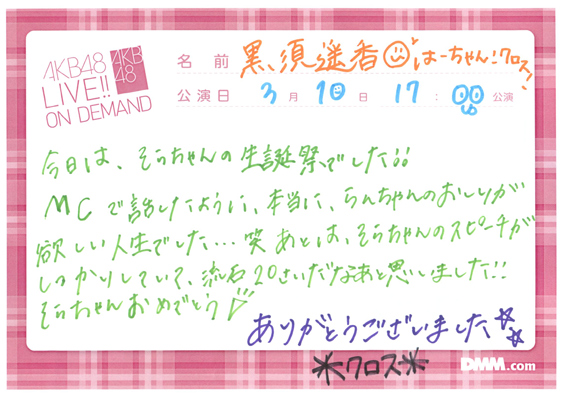 AKB48
LIVE!!
ON DEMAND
AKB
48
名前 黒須遥香 はーちゃん!クロス!
公演日 3月10日 17:00公演
今日は、そらちゃんの生誕祭でした!!
MCで話したように、本当に、らんちゃんのおしりが
欲しい人生でした...笑 あとは、そらちゃんのスピーチが
しっかりしていて、流石20さいだなあと思いました!!
そらちゃんおめでとう
ありがとうございました☆☆
*クロス*
DMM.com